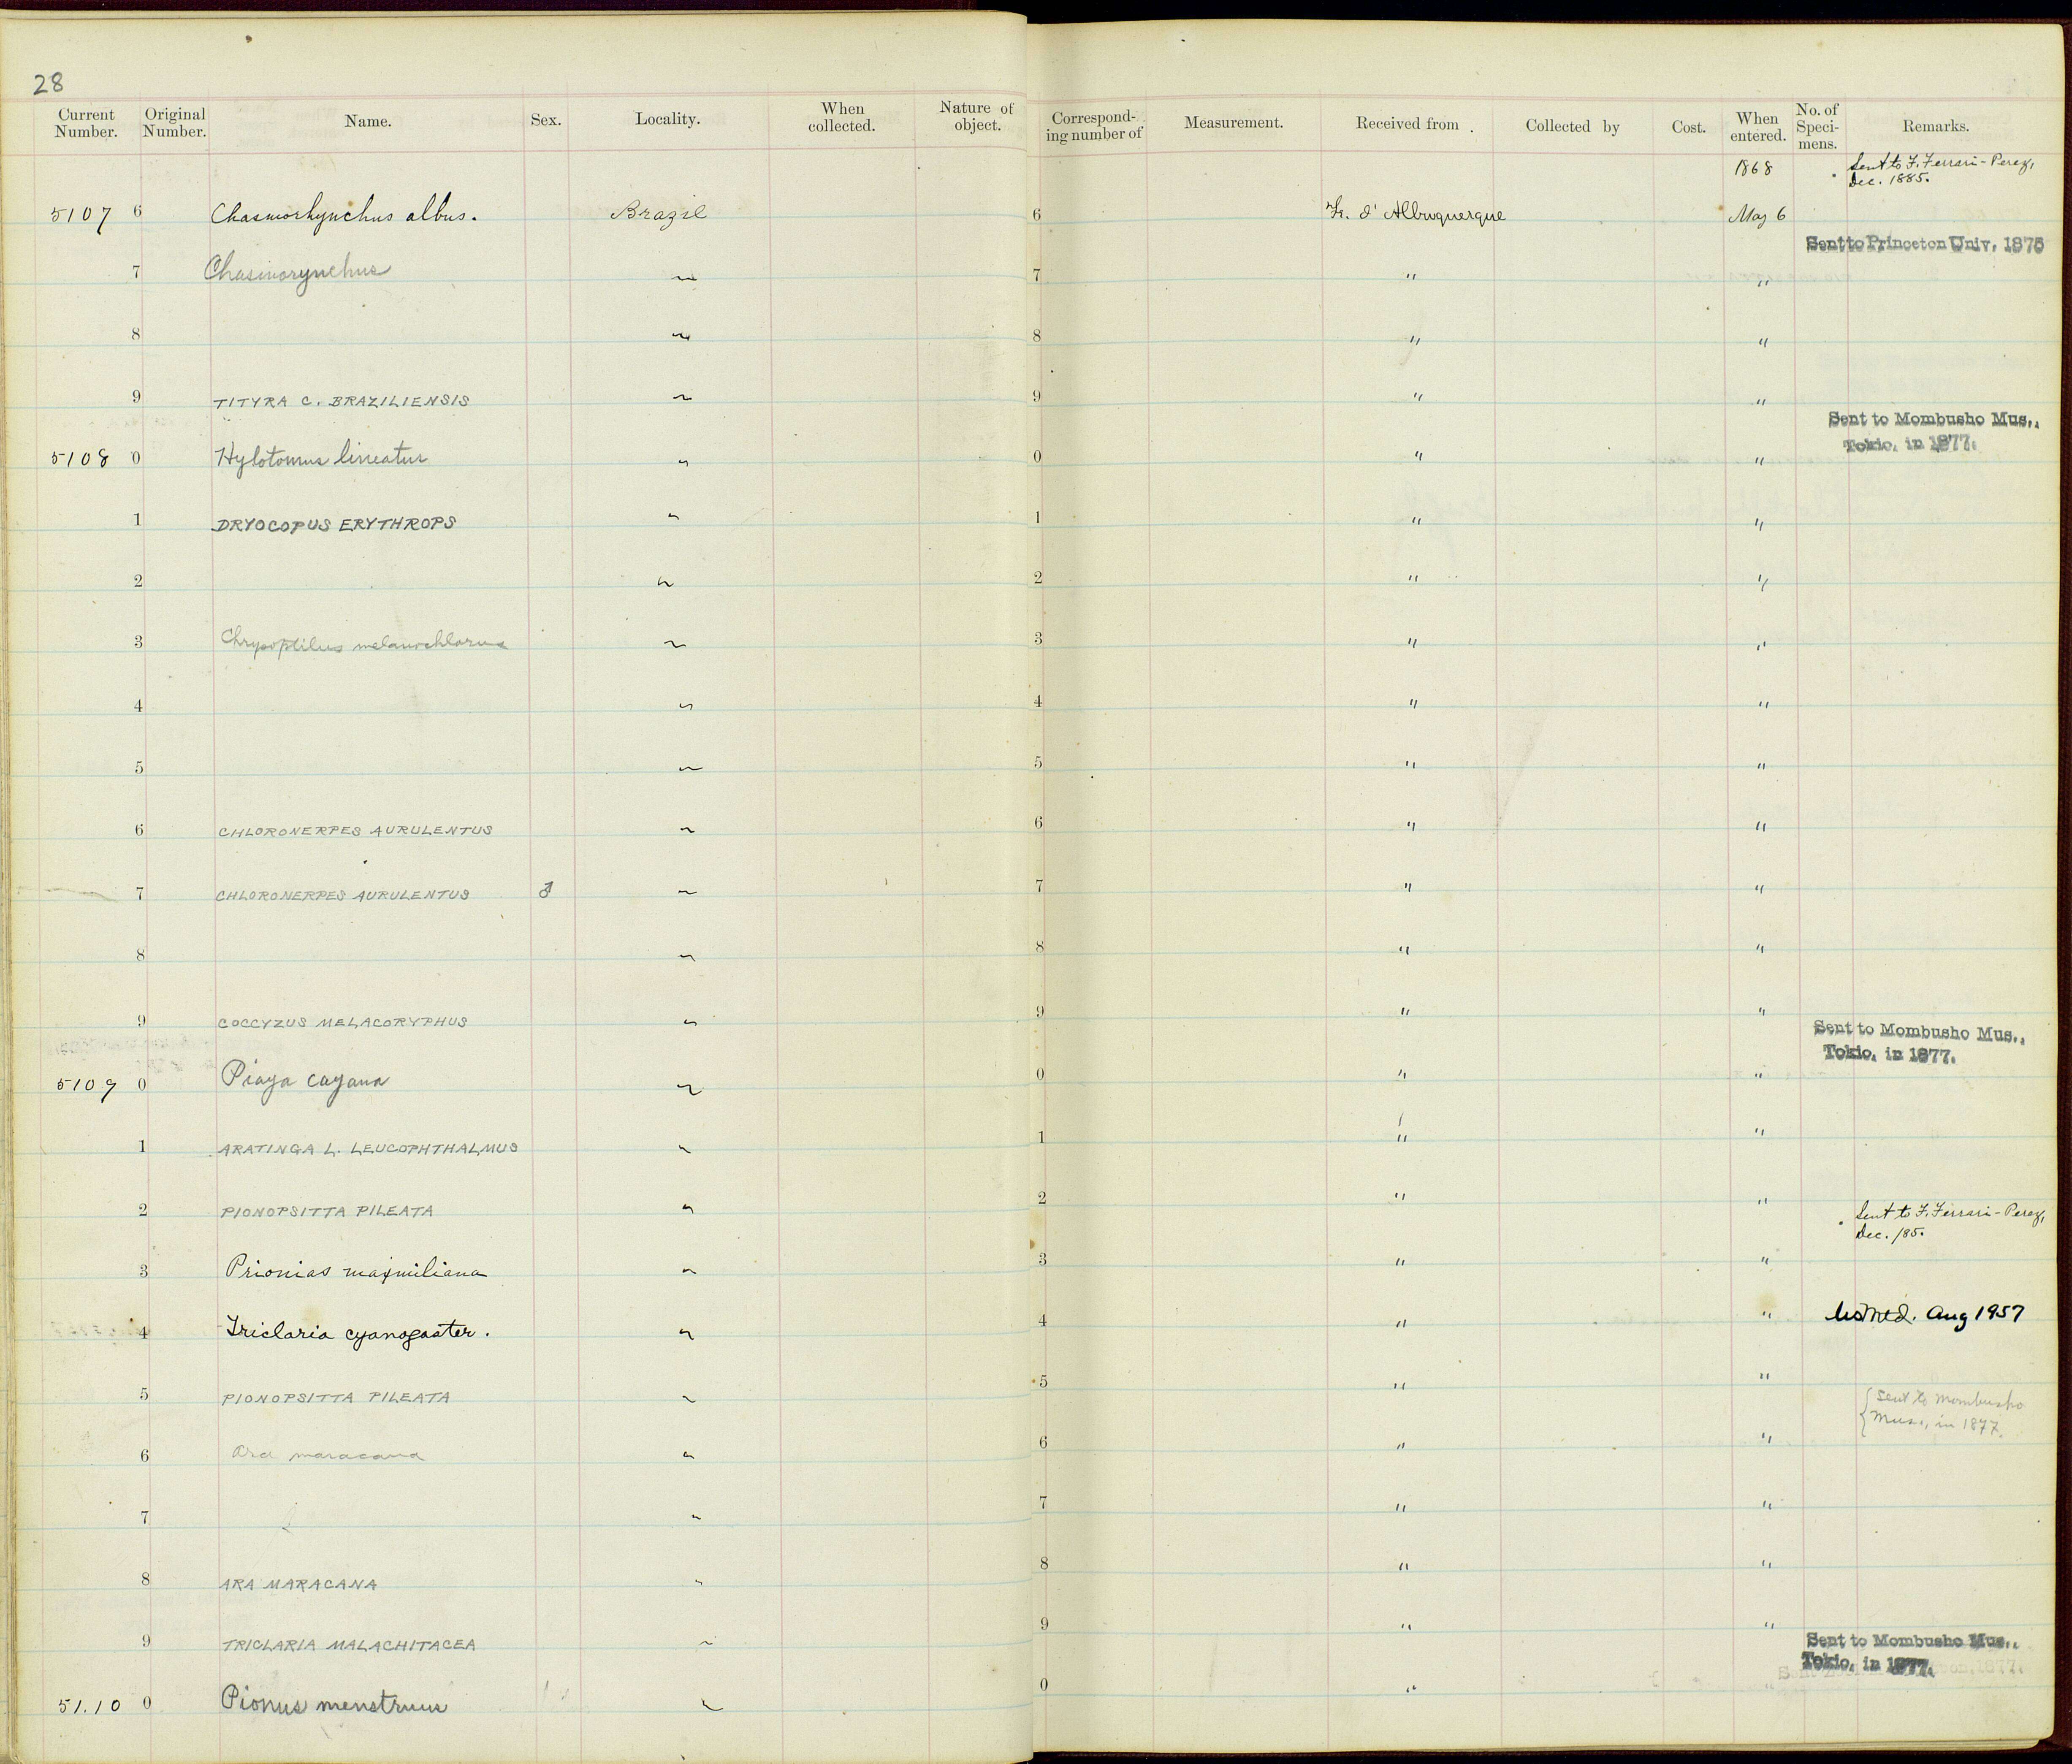 28
Current Number. Original Number. Name. Sex. Locality. When collected. Nature of object. Correspond-ing number of Measurement. Received from. Collected by Cost. When entered. No. of Speci-mens. Remarks.
1868 Sent to F. Ferrari-Perez,
Dec. 1885.
5107 6 Chasmorhynchus albus. Brazil 6 d' Albuquerque May 6
Sent to Princeton Univ. 1875
7 Chasmorynchus ~ 7 " "
8 ~ 8 " "
9 TITYRA C. BRAZILIENSIS ~ 9 " "
Sent to Mombusho Mus.,
Tokio, in 1877.
5108 0 Hylotomus lineatus ~ 0 " "
1 DRYOCOPUS ERYTHROPS ~ 1 " "
2 ~ 2 " "
3 Chrysoptilus melanochlorus ~ 3 " "
4 ~ 4 " "
5 ~ 5 " "
6 CHLORONERPES AURULENTUS ~ 6 " "
7 CHLORONERPES AURULENTUS ♂ ~ 7 " "
8 ~ 8 " "
9 COCCYZUS MELACORYPHUS ~ 9 " "
Sent to Mombusho Mus.,
Tokio, in 1877.
5109 0 Piaya cayana ~ 0 " "
1 ARATINGA L. LEUCOPHTHALMUS ~ 1 " "
2 PIONOPSITTA PILEATA ~ 2 " "
Sent to F. Ferrari-Perez,
Dec. 185.
3 Prionias maximiliana ~ 3 " "
4 Triclaria cyanogaster. ~ 4 " " Aug 1957
5 PIONOPSITTA PILEATA ~ 5 " "
{ Sent to Mombusho
Mus., in 1877.
6 Ara maracana ~ 6 " "
7 ~ 7 " "
8 ARA MARACANA ~ 8 " "
9 TRICLARIA MALACHITACEA ~ 9 " "
Sent to Mombusho Mus.,
Tokio, in 1877.
51.10 0 Pionus menstruus ~ 0 " "